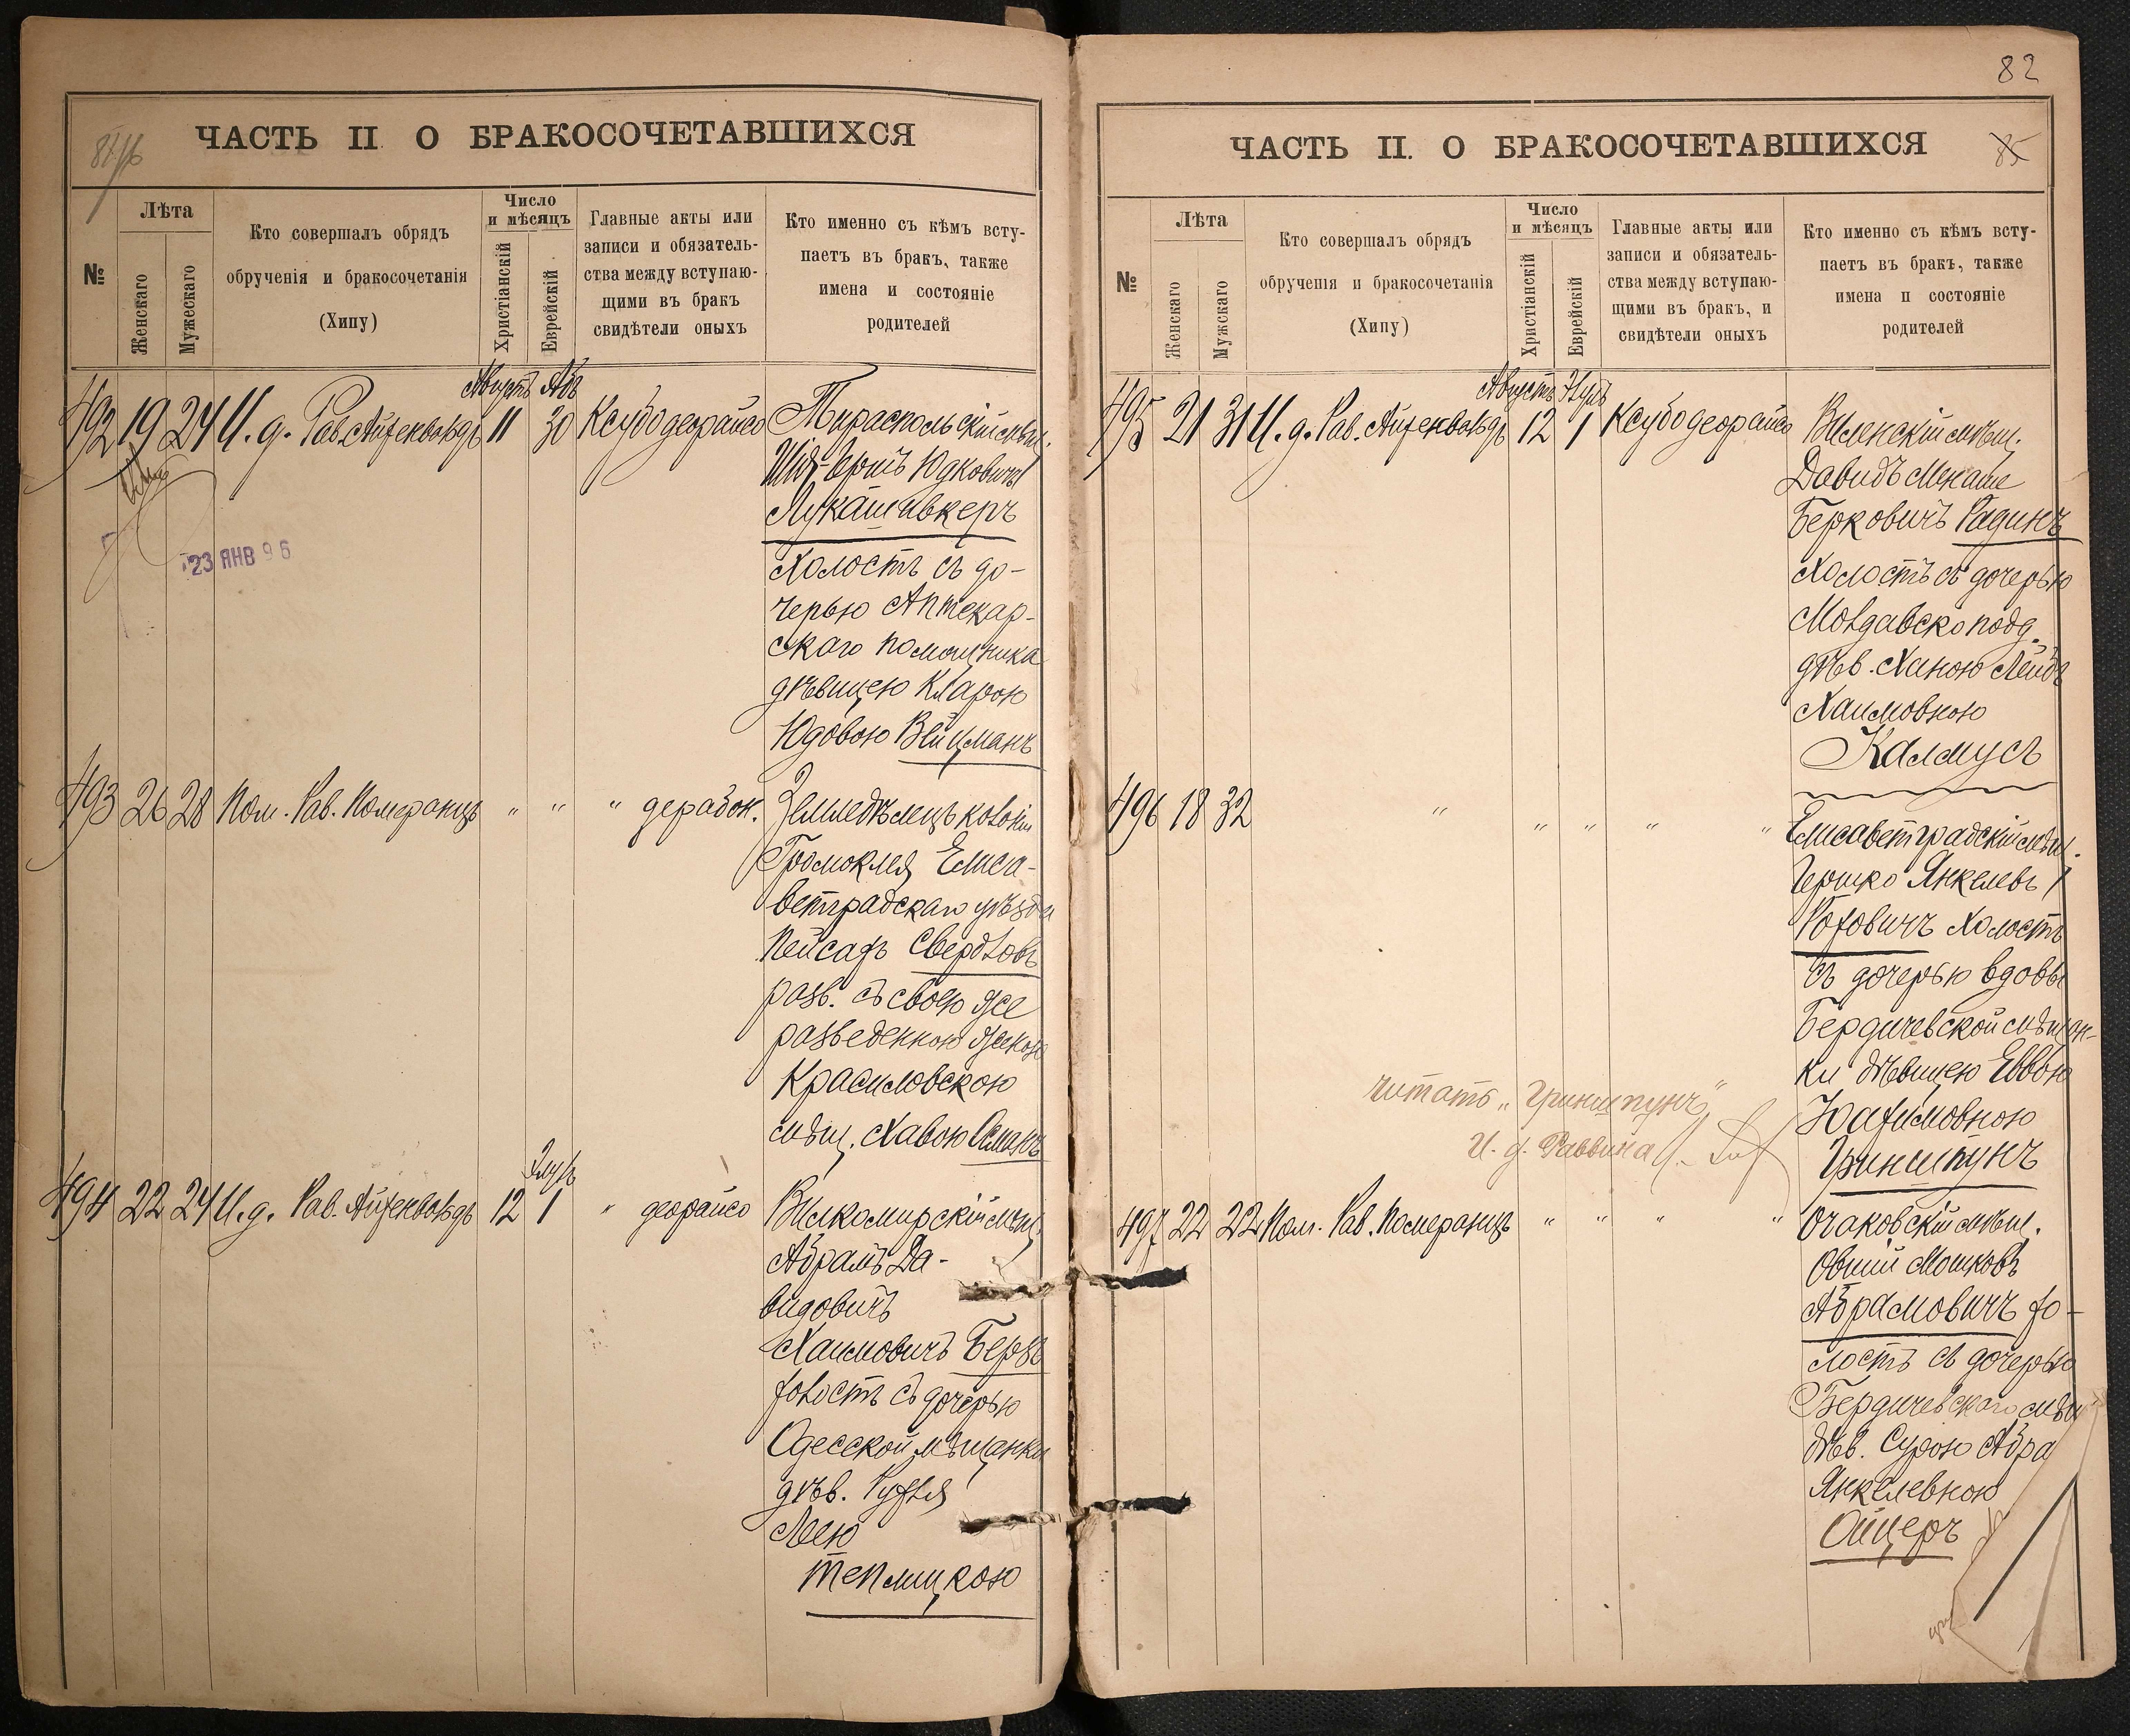 ЧАСТЬ II О БРАКОСОЧЕТАВШИХСЯ
№
Лѣта
Женскаго
Мужескаго
Кто совершалъ обрядъ
обрученія и бракосочетанія
(Хипу)
Число
и мѣсяцъ
Христіанскій
Еврейскій
Главные акты или
записи и обязатель-
ства между вступаю-
щими въ бракъ
свидѣтели оныхъ
Кто именно съ кѣмъ всту-
паетъ въ бракъ, также
имена и состояніе
родителей
Августъ Абъ
492 19 24 И. д. Рав. Айзенвальдъ 11 30 Ксубо деорайсо
Тираспольскій мѣщ.
Юдковичъ
Лукашивкеръ
Холостъ съ до-
черью Аптекар-
скаго помощника
дѣвицею Кларою
Юдовою Вейцманъ
23 ЯНВ 96
493 26 28 Пом. Рав. Померанцъ " " " дерабон.
Земледѣлецъ колоніи
Громоклея Елиса-
ветградскаго уѣзда
Пейсахъ Свердловъ
разв. съ своею же
разведенною женою
Красиловскою
мѣщ. Хавою
Элулъ
494 22 24 И. д. Рав. Айзенвальдъ 12 1 " деорайсо
Вилкомирскій мѣщ.
Абрамъ Да-
видовичъ
Хаимовичъ Беръ
холостъ съ дочерью
Одесской мѣщанки
дѣв. Рухля
Леею
Теплицкою
82
ЧАСТЬ II. О БРАКОСОЧЕТАВШИХСЯ
85
№
Лѣта
Женскаго
Мужскаго
Кто совершалъ обрядъ
обрученія и бракосочетанія
(Хипу)
Число
и мѣсяцъ
Христіанскій
Еврейскій
Главные акты или
записи и обязатель-
ства между вступаю-
щими въ бракъ, и
свидѣтели оныхъ
Кто именно съ кѣмъ всту-
паетъ въ бракъ, также
имена и состояніе
родителей
Августъ Элулъ
495 21 31 И. д. Рав. Айзенвальдъ 12 1 Ксубо деорайсо
Виленскій мѣщ.
Давидъ Менаше
Берковичъ Радинъ
Холостъ съ дочерью
Молдавско подд.
дѣв. Ханою Лейя
Хаимовною
Калмусъ
496 18 32 " " " " "
Елисаветградскій мѣщ.
Гершко Янкелевъ
Роховичъ Холостъ
съ дочерью вдовы
Бердичевской мѣщан-
ки дѣвицею Еввою
Нахимовною
Гринштунъ
читать „Гриншпунъ"
И. д. Раввина
497 22 22 Пом. Рав. Померанцъ " " " "
Очаковскій мѣщ.
Овший Мошковъ
Абрамовичъ хо-
лостъ съ дочерью
Бердичевскаго мѣщ
дѣв. Сурою Абра
Янкелевною
Ойцеръ